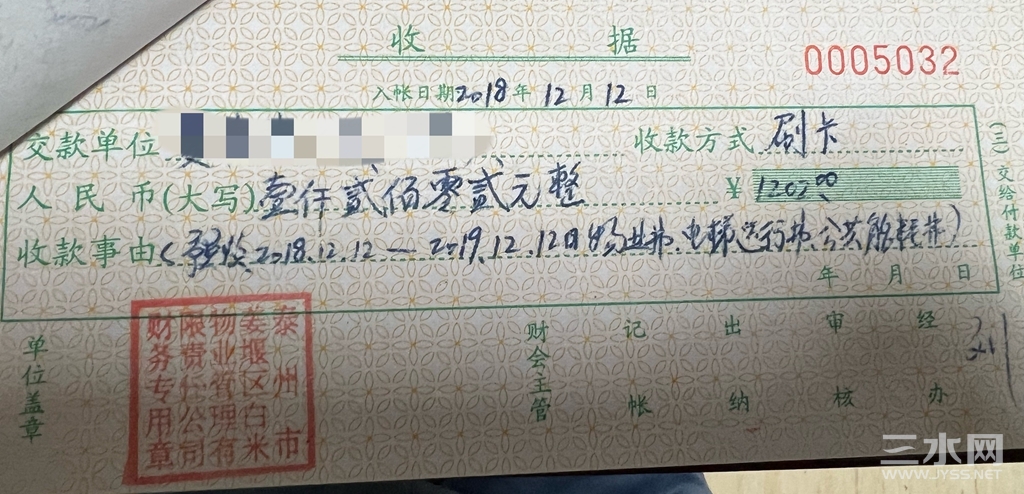 收据
0005032
入帐日期2018年12月12日
交款单位 收款方式 刷卡
人民币(大写) 壹仟贰佰零贰元整 ¥ 1202.00
收款事由(预收2018.12.12—2019.12.12日物业费.电梯运行费.公共能耗费)
年 月 日
(三)交给付款单位
单位盖章 财会主管 记帐 出纳 审核 经办
泰州市
姜堰区白米
物业管理有
限责任公司
财务专用章
三水网
WWW.JYSS.NET